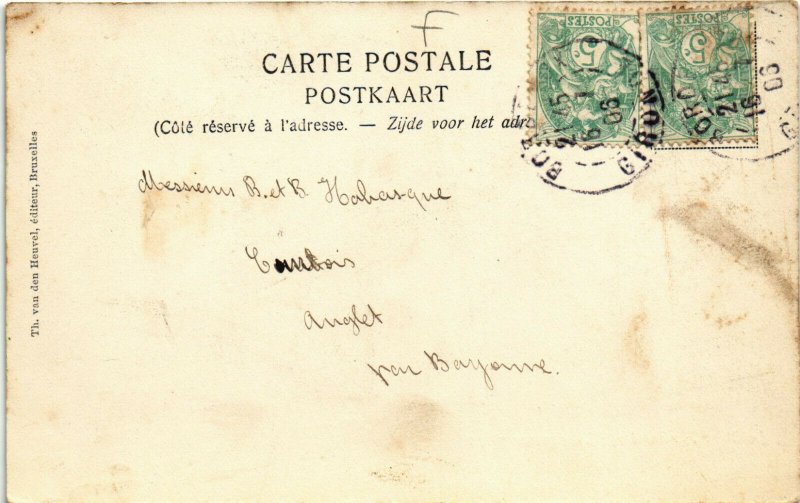 F
CARTE POSTALE
POSTKAART
(Côté réservé à l'adresse. — Zijde voor het adr
POSTES
5
POSTES
5
BORD
21 45
16 7
06
GIRON
BORD
16
06
Th. van den Heuvel, éditeur, Bruxelles
Messieurs B. et B. Habasque
Anglet
par Bayonne.